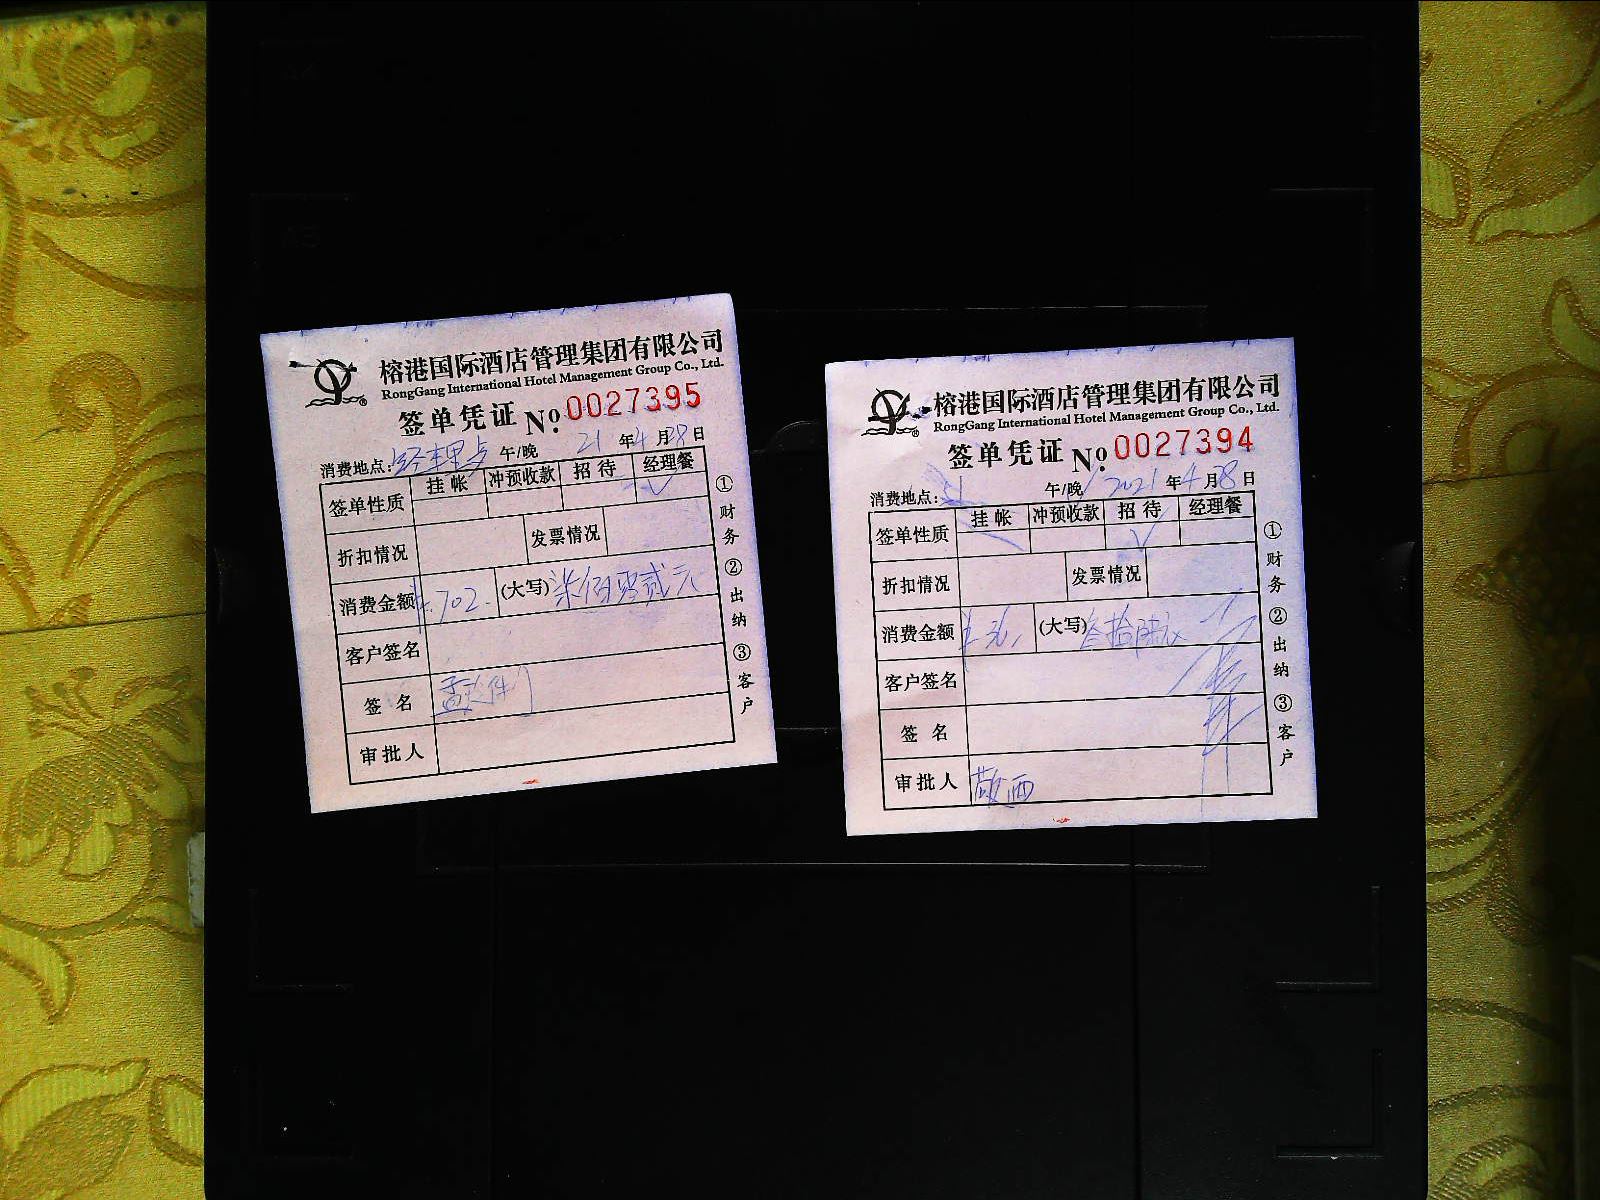 榕港国际酒店管理集团有限公司
RongGang International Hotel Management Group Co., Ltd.
签单凭证 No. 0027395
消费地点: 午/晚 21 年 4 月 28 日
签单性质 挂帐 冲预收款 招待 经理餐
√
折扣情况 发票情况
消费金额 ¥702. (大写) 柒佰零贰元
客户签名
签名
审批人
① 财务 ② 出纳 ③ 客户
榕港国际酒店管理集团有限公司
RongGang International Hotel Management Group Co., Ltd.
签单凭证 No. 0027394
消费地点: 午/晚 2021 年 4 月 28 日
签单性质 挂帐 冲预收款 招待 经理餐
√
折扣情况 发票情况
消费金额 (大写) 叁拾
客户签名
签名
审批人
① 财务 ② 出纳 ③ 客户